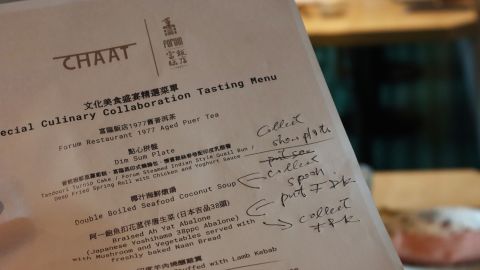 CHAAT
FORUM
文化美食盛宴精選菜單
ecial Culinary Collaboration Tasting Menu
富臨飯店1977舊普洱茶
Forum Restaurant 1977 Aged Puer Tea
點心拼盤
Dim Sum Plate
Tandouri Turnip Cake / Forum Steamed Indian Style Quail Bun /
Deep Fried Spring Roll with Chicken and Yoghurt Sauce
椰汁海鮮燉湯
Double Boiled Seafood Coconut Soup
阿一鮑魚扣花菇伴生菜(日本吉品38頭)
Braised Ah Yat Abalone
(Japanese Yoshihama 38ppc Abalone)
with Mushroom and Vegetables served with
freshly baked Naan Bread
uffed with Lamb Kebab
collect
show plate
collect
spoon
put
collect